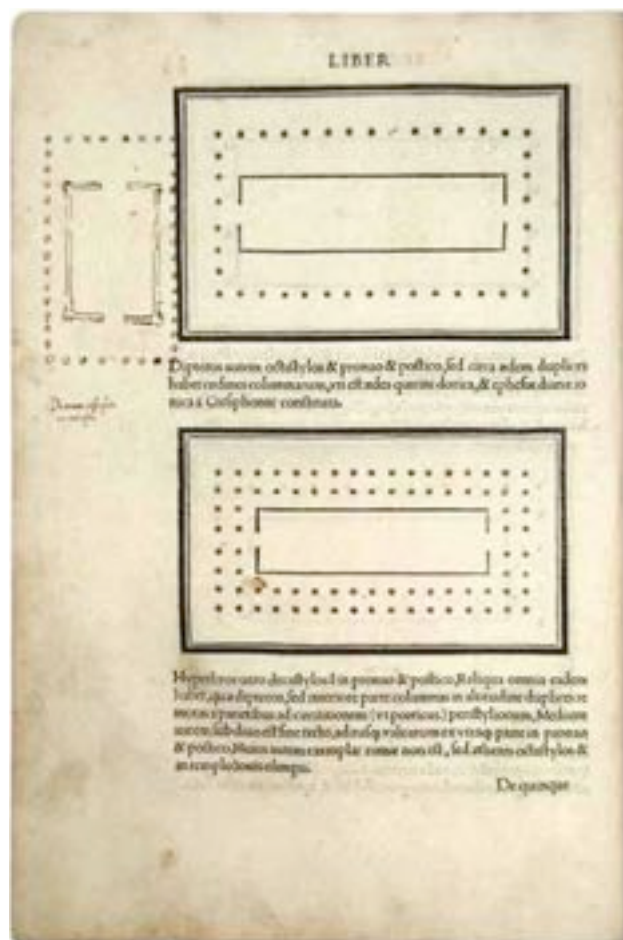 LIBER
Dipteros autem octastylos & pronao & postico, sed circa ædem duplices
habet ordines columnarum, uti est ædes quirini dorica, & ephesiæ dianæ io
nica a Ctesiphonte constituta.
Hypethros uero decastylos est in pronao & postico, Reliqua omnia eadem
habet, quæ dipteros, sed interiore parte columnas in altitudine duplices re
motas a parietibus ad circuitionem (ut porticus) peristyliorum, Medium
autem sub diuo est sine tecto, aditusq; ualuarum ex utraq; parte in pronao
& postico, Huius autem exemplar romæ non est, sed athenis octastylos &
in templo iouis olympii.
De quinque